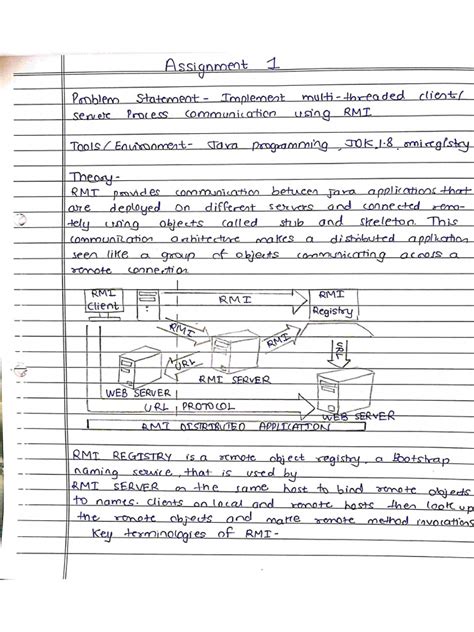 Assignment 1
Problem Statement - Implement multi-threaded client/
server Process communication using RMI
Tools / Environment - Java programming, JDK 1.8, rmiregistry
Theory -
RMI provides communication between java applications that
are deployed on different servers and connected remo-
tely using objects called stub and skeleton. This
communication architecture makes a distributed application
seen like a group of objects communicating across a
remote connection
RMI
Client
RMI
RMI
Registry
RMI
RMI
URL
URL
RMI SERVER
WEB SERVER
URL PROTOCOL
WEB SERVER
RMI DISTRIBUTED APPLICATION
RMI REGISTRY is a remote object registry, a Bootstrap
naming service, that is used by
RMI SERVER on the same host to bind remote objects
to names. Clients on local and remote hosts then look up
the remote objects and make remote method invocations
Key terminologies of RMI -